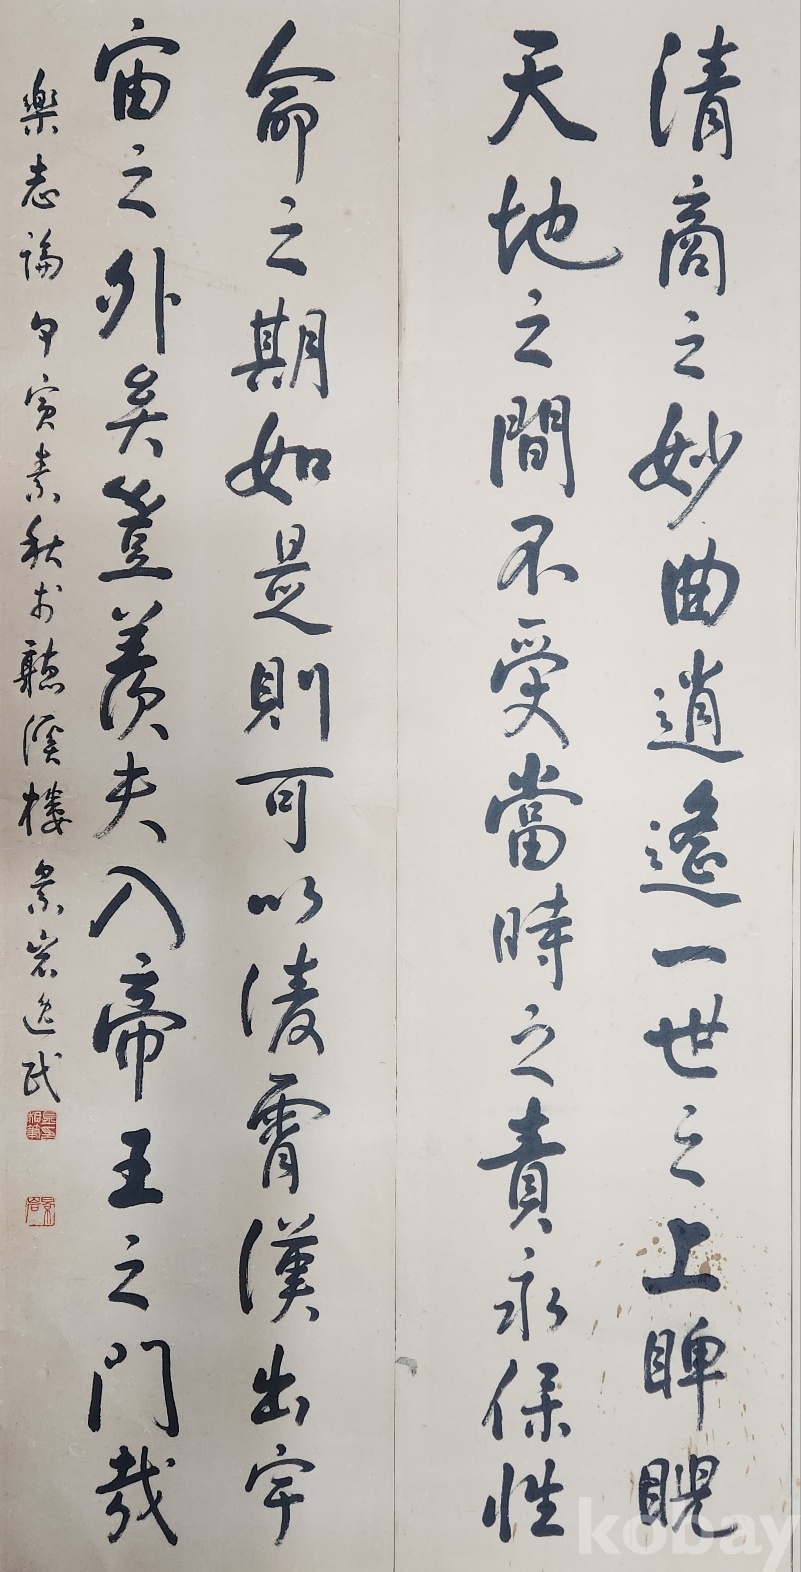 清商之妙曲逍遙一世之上睥睨
天地之間不受當時之責永保性
命之期如是則可以淩霄漢出宇
宙之外矣豈羨夫入帝王之門哉
樂志論 甲寅素秋於聽溪樓 景岩逸民
kobay